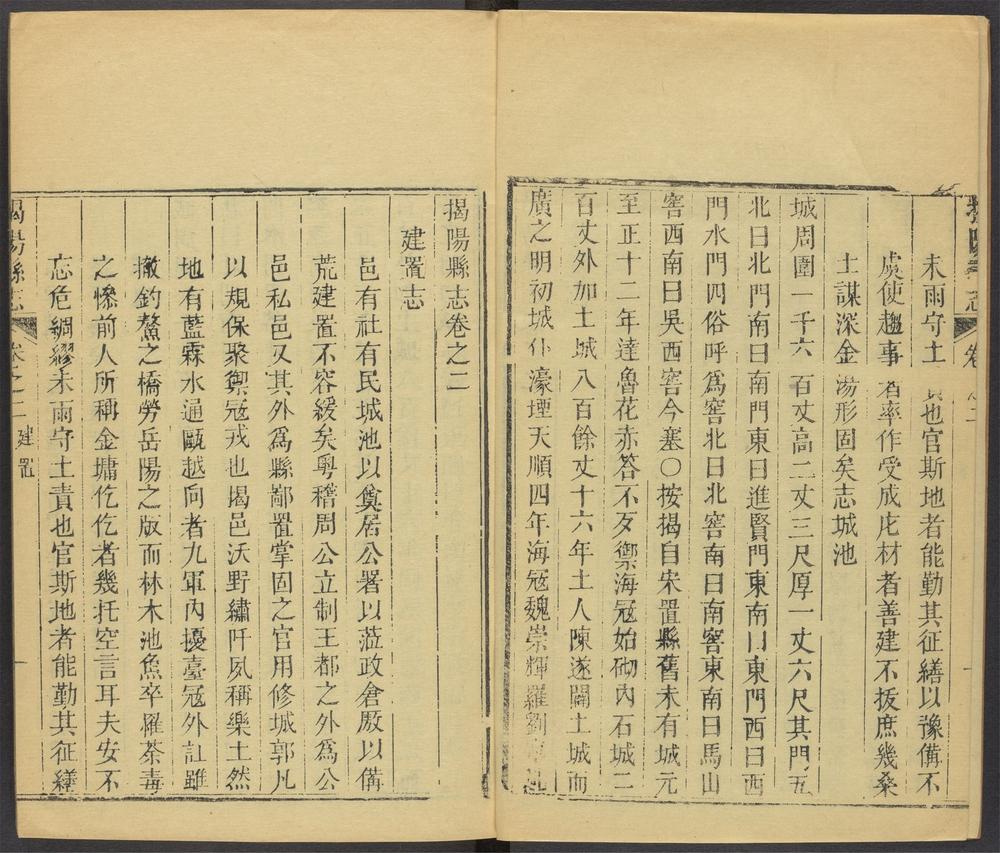 揭陽縣志 卷
未雨守土 也官斯地者能勤其征繕以豫備不
虞使趨事者率作受成庀材者善建不拔庶幾桑
土謀深金湯形固矣志城池
城周圍一千六百丈高二丈三尺厚一丈六尺其門五
北曰北門南曰南門東曰進賢門東南曰東門西曰西
門水門四俗呼爲窖北曰北窖南曰南窖東南曰馬山
窖西南曰吳西窖今塞○按揭自宋置縣舊未有城元
至正十二年達魯花赤答不歹禦海寇始砌內石城二
百丈外加土城八百餘丈十六年土人陳遂闢土城而
廣之明初城仆濠堙天順四年海寇魏崇輝羅劉
揭陽縣志卷之二
建置志
邑有社有民城池以奠居公署以蒞政倉厫以備
荒建置不容緩矣粵稽周公立制王都之外爲公
邑私邑又其外爲縣鄙置掌固之官用修城郭凡
以規保聚禦寇戎也揭邑沃野繡阡夙稱樂土然
地有藍霖水通甌越向者九軍內擾臺寇外訌雖
撤釣鰲之橋勞岳陽之版而林木池魚卒罹荼毒
之慘前人所稱金墉仡仡者幾托空言耳夫安不
忘危綢繆未雨守土責也官斯地者能勤其征繕
揭陽縣志 卷之二 建置 一